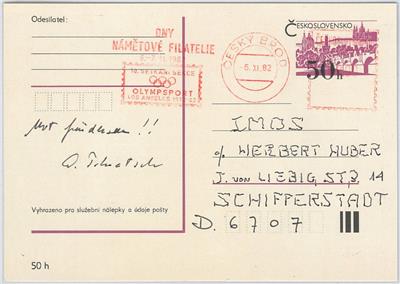 Odesílatel:
DNY
NÁMĚTOVÉ FILATELIE
10. SETKÁNÍ SEKCE
OLYMPSPORT
LOS ANGELES
ČESKÝ BROD
-6.XI.82
ČESKOSLOVENSKO
50 h
!!
IMOS
c/o HERBERT HUBER
J. von LIEBIG STR 14
SCHIFFERSTADT
D. 6707
Vyhrazeno pro služební nálepky a údaje pošty
50 h